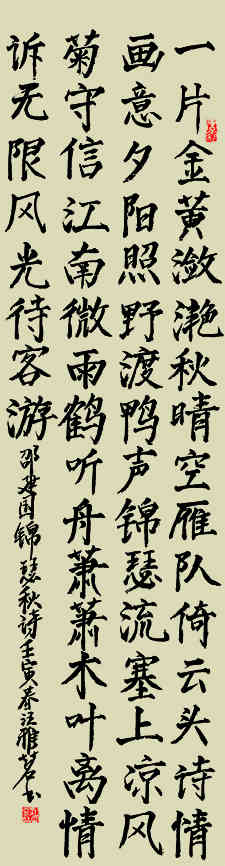 一片金黄潋滟秋晴空雁队倚云头诗情
画意夕阳照野渡鸭声锦瑟流塞上凉风
菊守信江南微雨鹤听舟萧萧木叶离情
诉无限风光待客游
邵建国锦瑟秋诗壬寅春江雅茗书